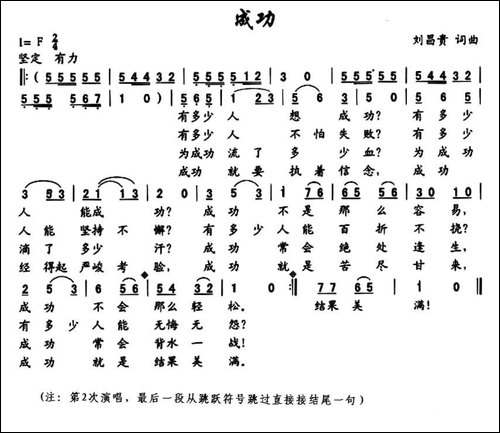 成功
1=F 2/4
刘昌贵 词曲
坚定 有力
‖:(55555 | 54432 | 55555 | 5512 | 30 | 5555 | 5432 |
555 567 | 10) | 565 | 1 23 | 5 6 3 | 5 0 | 565 |
有多少 人 想 成功? 有多少
有多少 人 不怕 失败? 有多少
为成功 流了 多少 血? 为成功
成功 就要 执着 信念, 成功
3 53 | 21 13 | 2 0 | 3 5 3 | 1 76 | 65 56 | 30 10 |
人 能成 功? 成功 不是 那么 容易,
人能 坚持不 懈? 有多少 人能 百折不 挠?
滴了 多少 汗? 成功 常会 绝处 逢生,
经得起 严峻考 验, 成功 就是 苦尽 甘来,
2 53 | 6 56 | 54 32 | 1 0 :‖ 77 65 | 1 0 ‖
成功 不会 那么轻 松。 结果美 满!
有多少 人能 无悔无 怨?
成功 常会 背水一 战!
成功 就是 结果美 满。
(注:第2次演唱,最后一段从跳跃符号跳过直接接结尾一句)